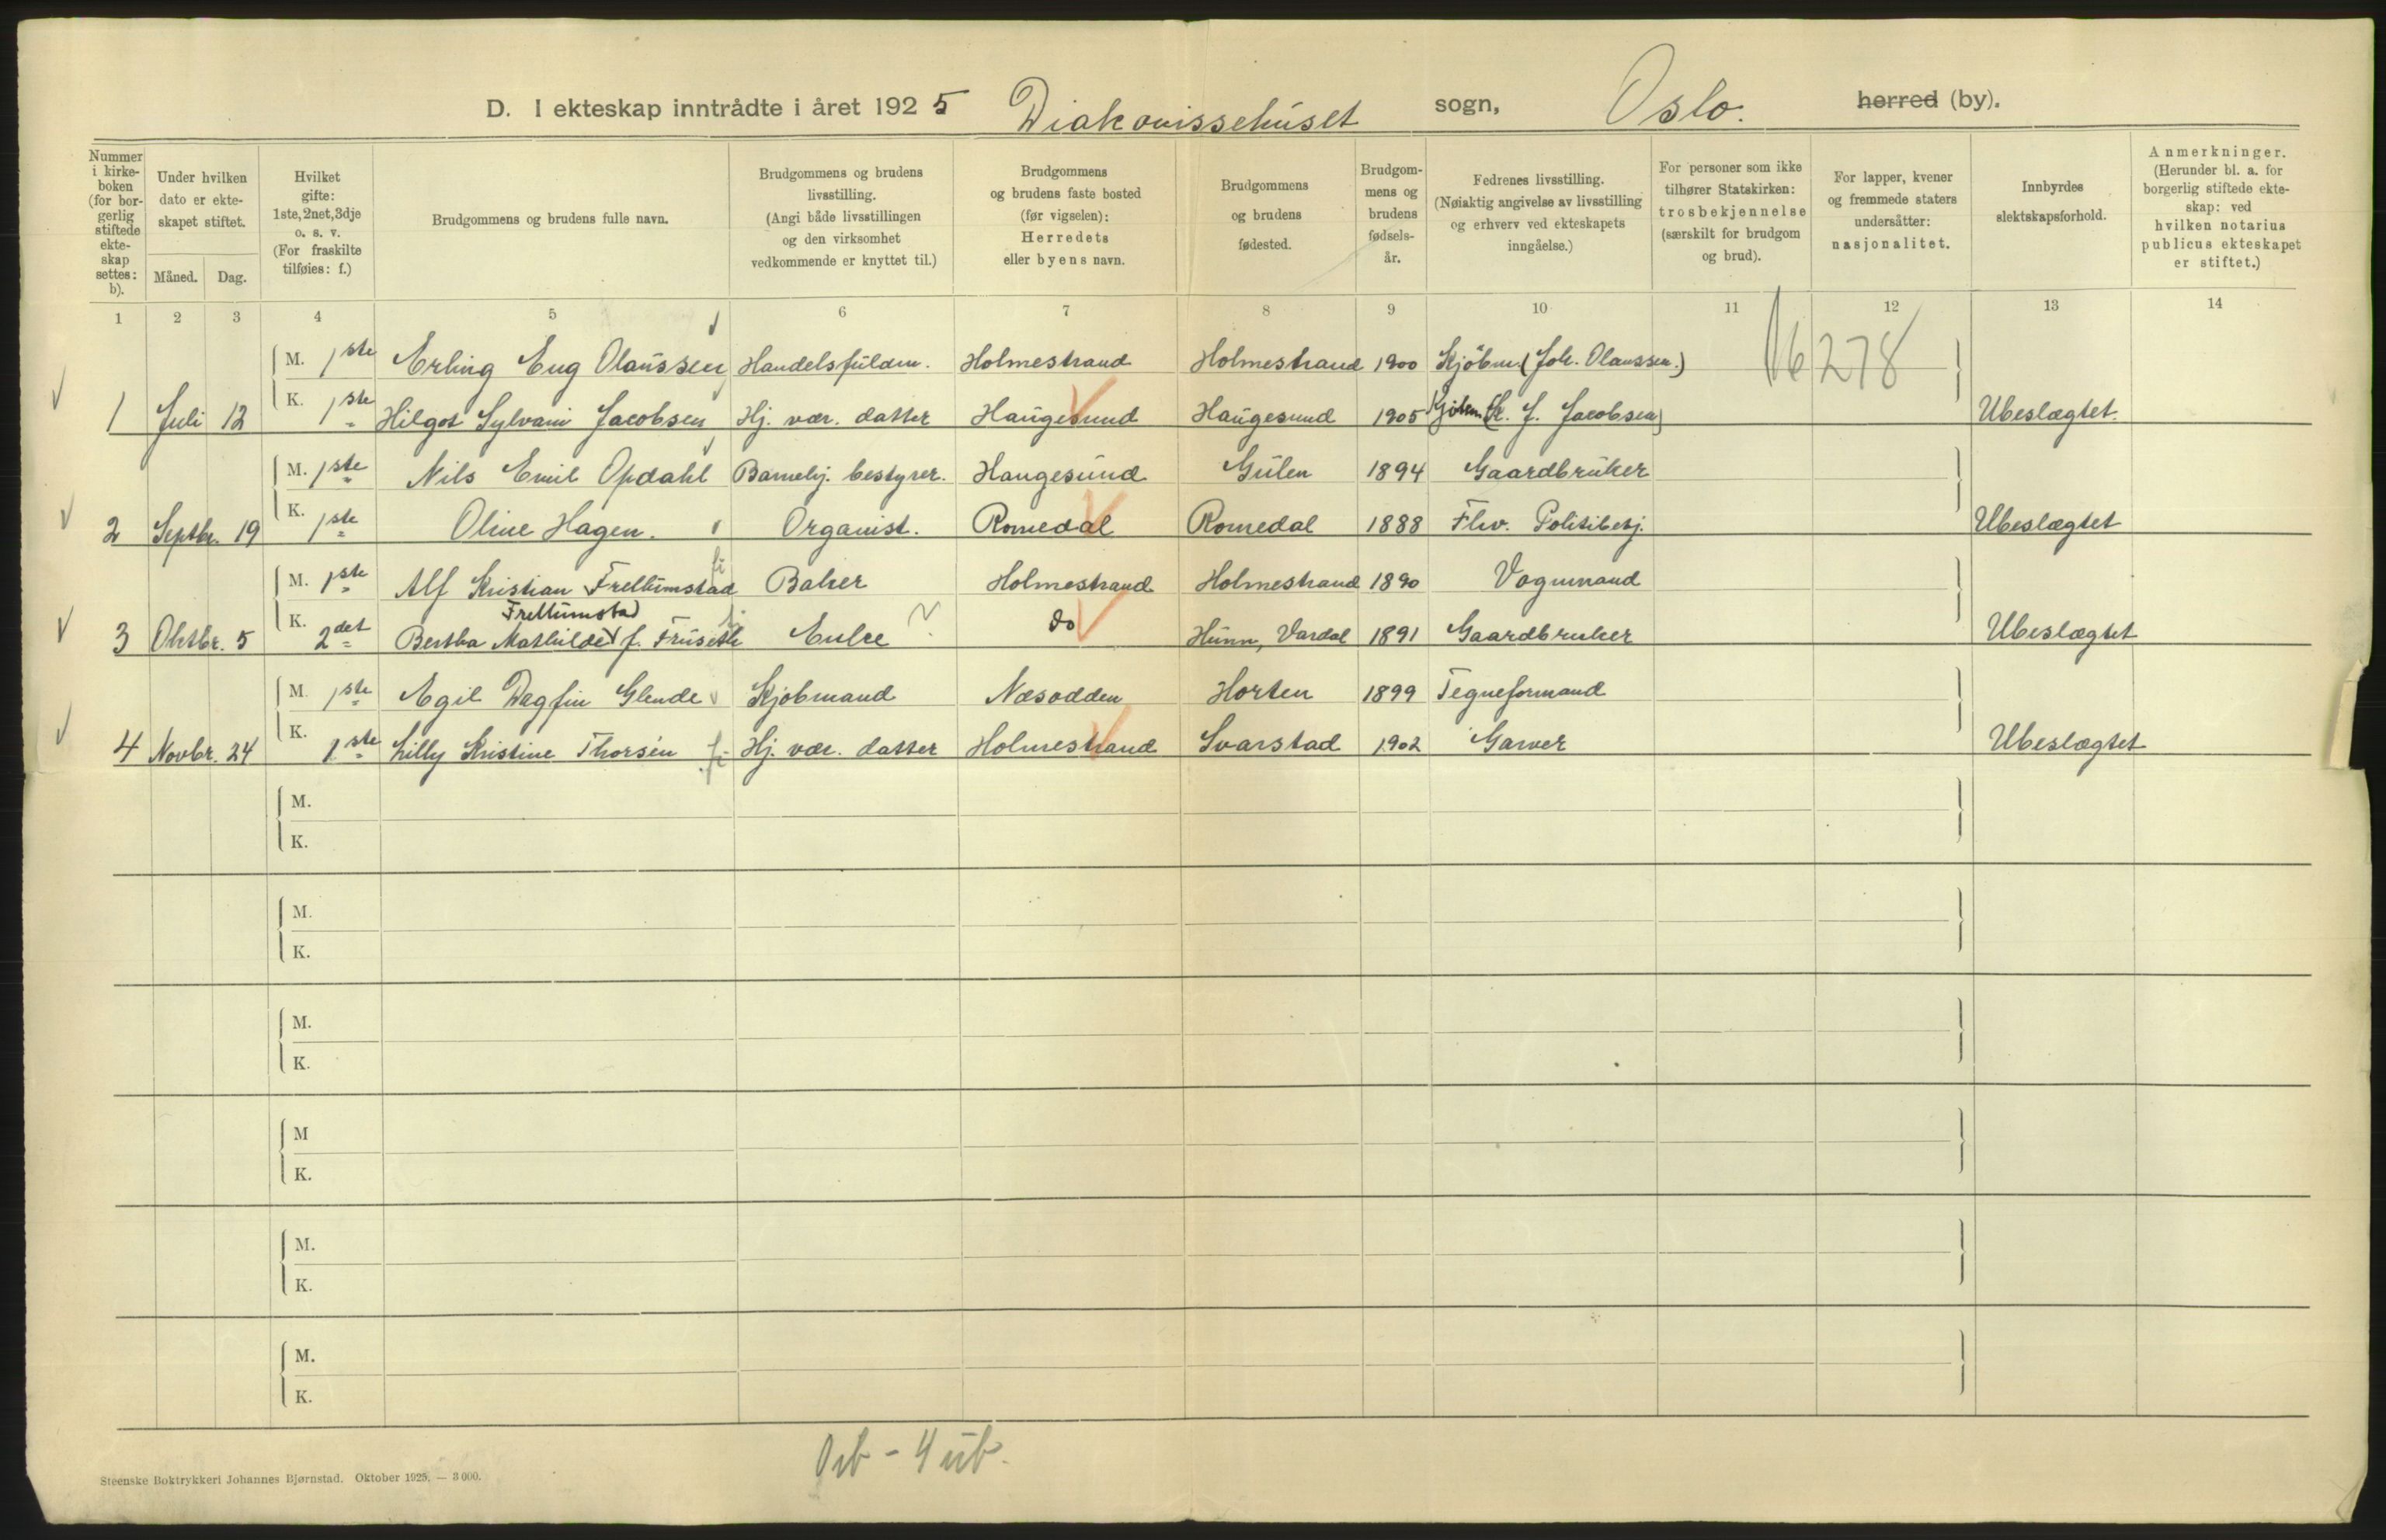 D. I ekteskap inntrådte i året 1925 Diakonissehuset sogn, Oslo. herred (by).
Nummer i kirkeboken (for borgerlig stiftede ekteskap settes: b).
Under hvilken dato er ekteskapet stiftet.
Måned. Dag.
Hvilket gifte: 1ste, 2net, 3dje o. s. v. (For fraskilte tilføies: f.)
Brudgommens og brudens fulle navn.
Brudgommens og brudens livsstilling. (Angi både livsstillingen og den virksomhet vedkommende er knyttet til.)
Brudgommens og brudens faste bosted (før vigselen): Herredets eller byens navn.
Brudgommens og brudens fødested.
Brudgommens og brudens fødselsår.
Fedrenes livsstilling. (Nøiaktig angivelse av livsstilling og erhverv ved ekteskapets inngåelse.)
For personer som ikke tilhører Statskirken: trosbekjennelse (særskilt for brudgom og brud).
For lapper, kvener og fremmede staters undersåtter: nasjonalitet.
Innbyrdes slektskapsforhold.
Anmerkninger. (Herunder bl. a. for borgerlig stiftede ekteskap: ved hvilken notarius publicus ekteskapet er stiftet.)
1 2 3 4 5 6 7 8 9 10 11 12 13 14
M. 1ste Erling Eug Olaussen Handelsfuldm. Holmestrand Holmestrand 1900 Kjøbm. (Joh. Olaussen.) 16278
1 Juli 12 K. 1ste Hilgot Sylvani Jacobsen Hj. vær. datter Haugesund Haugesund 1905 Kjøbm. (K. J. Jacobsen) Ubeslægtet.
M. 1ste Nils Emil Opdahl Barnehj. bestyrer. Haugesund Gulen 1894 Gaardbruker
2 Septbr. 19 K. 1ste Oline Hagen. Organist. Romedal Romedal 1888 Fhv. Politibetj. Ubeslægtet
M. 1ste Alf Kristian Frellumstad Baker Holmestrand Holmestrand 1890 Vognmand
Frellumstad
3 Oktbr. 5 K. 2det Bertha Mathilde f. Fruseth Enke ? Do Hunn, Vardal 1891 Gaardbruker Ubeslægtet
M. 1ste Egil Dagfin Glende Kjøbmand Næsodden Horten 1899 Tegneformand
4 Novbr. 24 K. 1ste Lilly Kristine Thorsén Hj. vær. datter Holmestrand Svarstad 1902 Garver Ubeslægtet
M.
K.
M.
K.
M.
K.
M
K.
M.
K.
M.
K.
Steenske Boktrykkeri Johannes Bjørnstad. Oktober 1925. — 3 000.